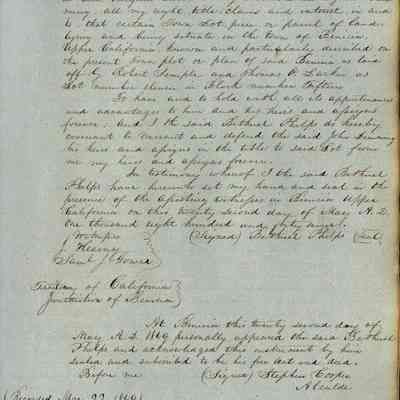 ming, all my right title claims and interest, in and
to that certain Town Lot, piece or parcel of land
lying and being situate in the town of Benicia
Upper California known and particularly described on
the present Town plot or plan of said Benicia as laid
off by Robert Semple and Thomas O. Larkin as
Lot number eleven in Block number fifteen
To have and to hold with all its appurtenances
and advantages to him and his heirs and assigns
forever, and I the said Bethuel Phelps do hereby
covenant to warrant and defend the said John
his heirs and assigns in the title to said Lot from
me my heirs and assigns forever.
In testimony whereof I the said Bethuel
Phelps have hereunto set my hand and seal in the
presence of the witnesses in Benicia Upper
California on this twenty second day of May A.D.
one thousand eight hundred and forty nine.
Witness (Signed) Bethuel Phelps (Seal)
J Heaney
Saml J Gower
Territory of California
Jurisdiction of Benicia
At Benicia this twenty second day of
May A.D. 1849 personally appeared the said Bethuel
Phelps and acknowledged this instrument by him
sealed and subscribed to be his free act and deed.
Before me (Signed) Stephen Cooper
Alcalde
(Recorded May 22 1849)